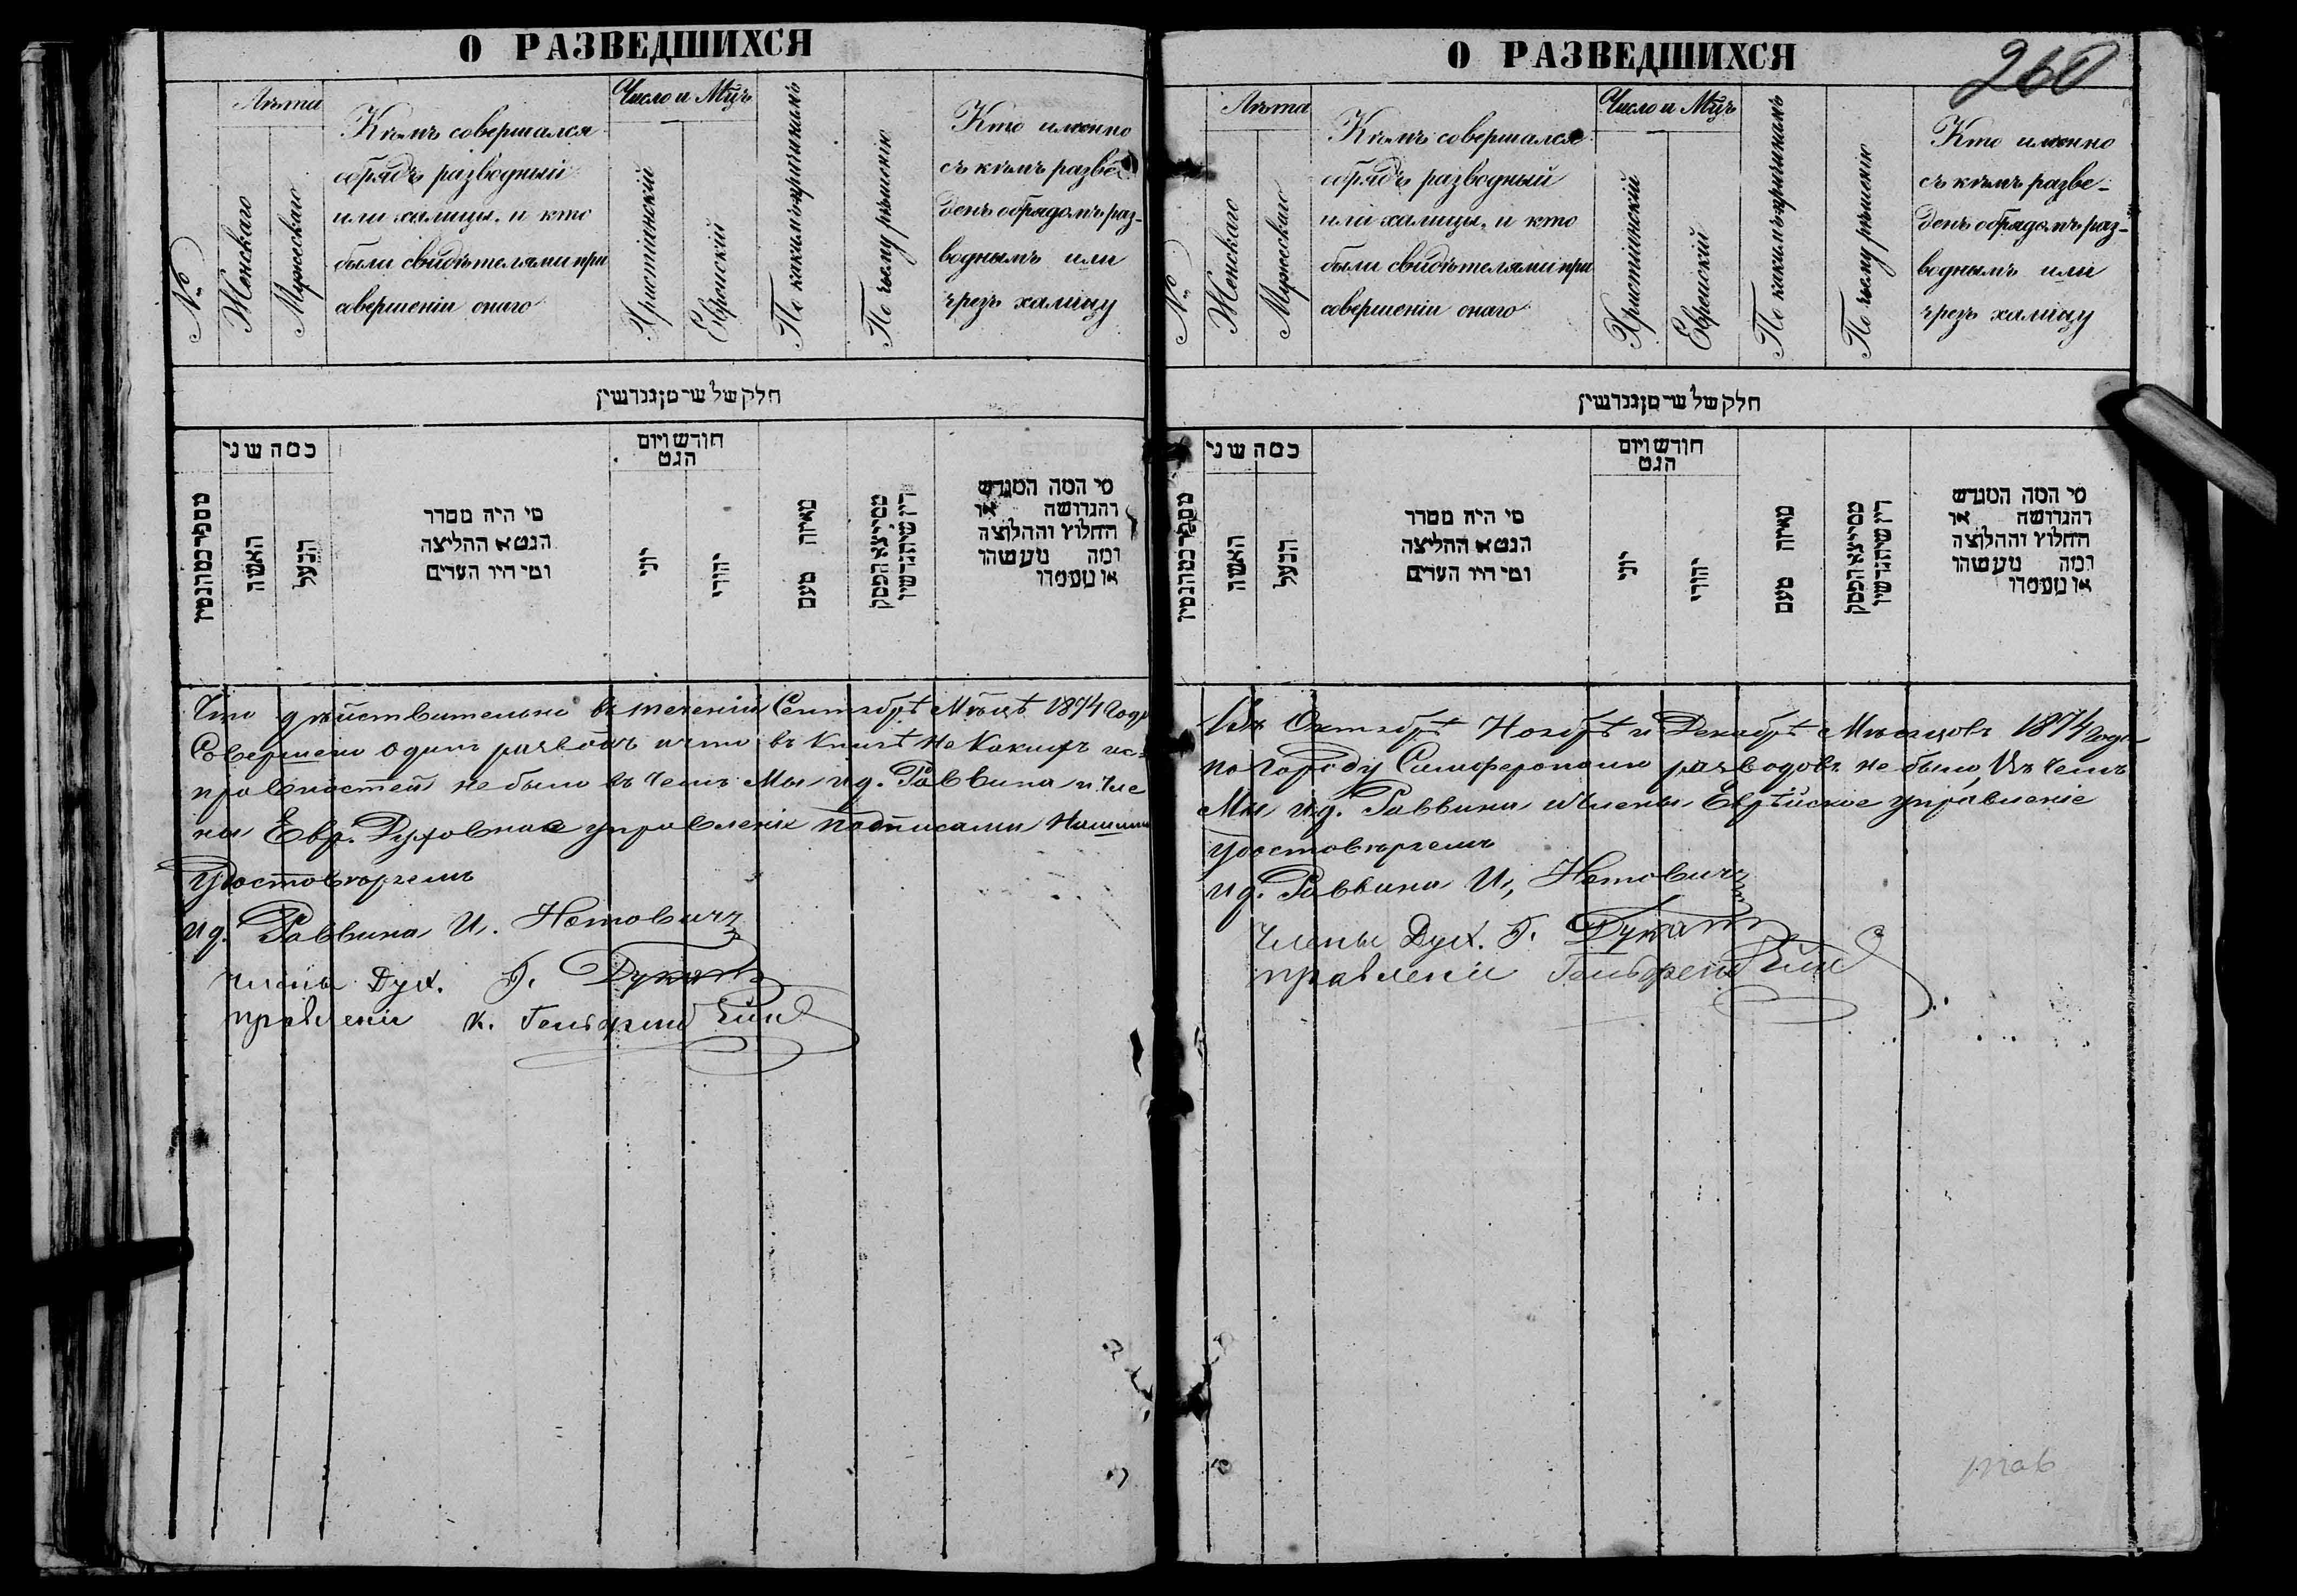 О РАЗВЕДШИХСЯ
№
Лѣта
Женскаго
Мужескаго
Кѣмъ совершался
обрядъ разводный
или халицы, и кто
были свидѣтелями при
совершеніи онаго
Число и Мцъ
Христіянскій
Еврейскій
По какимъ причинамъ
По чьему рѣшенію
Кто именно
съ кѣмъ разве
денъ обрядомъ раз-
воднымъ или
чрезъ халицу
חלק של שרטן גנרושין
כמה שני
האשה
הבעל
מי היה מסדר
הגט או החליצה
ומי היו העדים
חודש ויום
הגט
יוני
יהודי
מאיזה טעם
מי המה המגרש
והגרושה או
החלוץ והחלוצה
ומה מעשהו
או מעמדו
Что дѣйствительно въ теченіи Сентябрѣ Мѣсцѣ 1874 Года
Совершено одинъ разводъ и что въ книгѣ не какихъ ис-
провностей не было въ чемъ мы ид. Раввина и Чле
ны Евр. Духовнае управленія подписами нашими
удостовѣряемъ
ид. Раввина И. Нотовичъ
члены Дух. Г. Дукатъ
правленіи К. Гельфенд
О РАЗВЕДШИХСЯ
260
№
Лѣта
Женскаго
Мужескаго
Кѣмъ совершался
обрядъ разводный
или халицы, и кто
были свидѣтелями при
совершеніи онаго
Число и Мцъ
Христіянскій
Еврейскій
По какимъ причинамъ
По чьему рѣшенію
Кто именно
съ кѣмъ разве-
денъ обрядомъ раз-
воднымъ или
чрезъ халицу
חלק של שרטן גנרושין
כמה שני
האשה
הבעל
מי היה מסדר
הגט או החליצה
ומי היו העדים
חודש ויום
הגט
יוני
יהודי
מאיזה טעם
מי המה המגרש
והגרושה או
החלוץ והחלוצה
ומה מעשהו
או מעמדו
Въ Октябрѣ Ноябрѣ и Декабрѣ Мѣсяцовъ 1874 Года
по Городу Симферополю разводовъ не было, въ чемъ
Мы ид. Раввина и члены Еврѣйское управленіе
удостовѣряемъ
ид. Раввина И. Нотовичъ
Члены Дух. Г. Дукатъ
правленіи Гельфенд